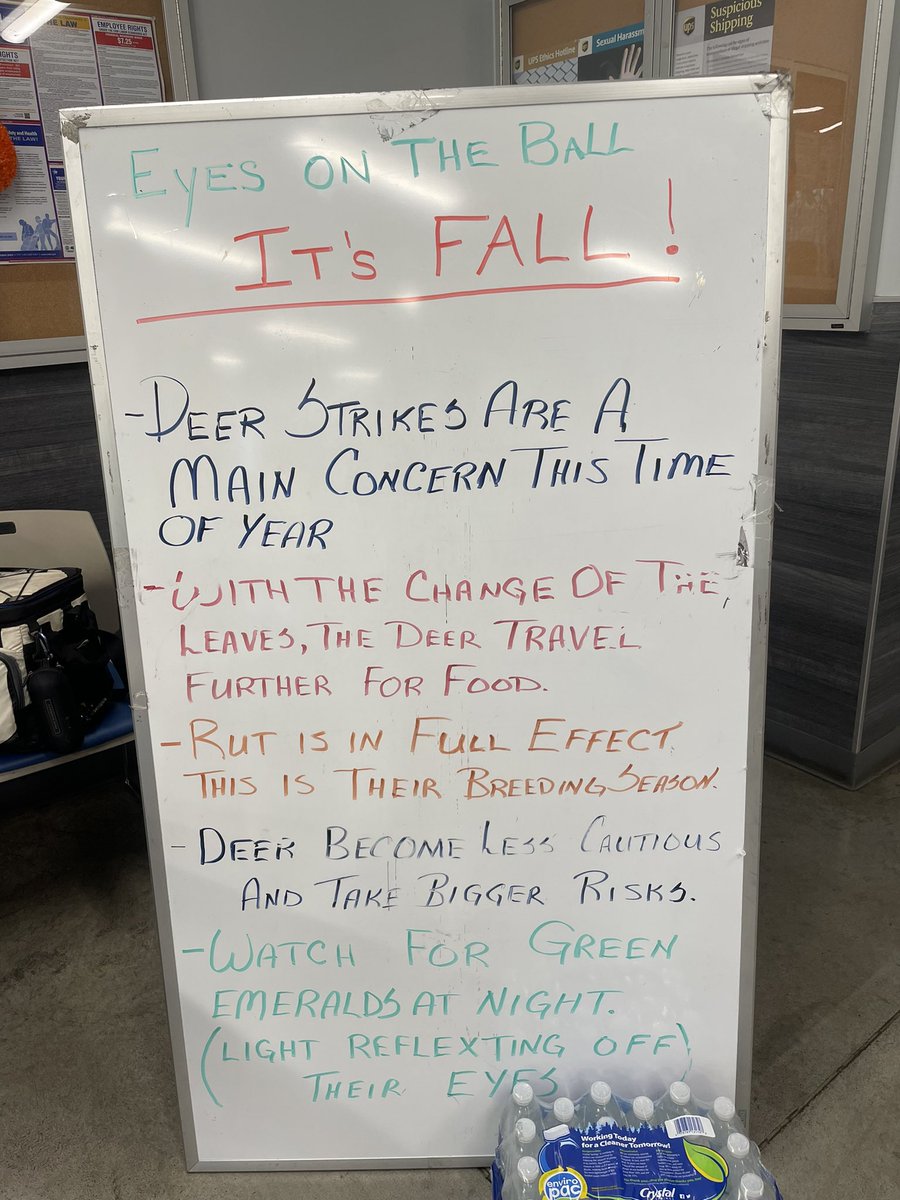 THE LAW
EMPLOYEE RIGHTS
$7.25
RIGHTS
UPS Ethics Hotline
Sexual Harassm
Suspicious
Shipping
EYES ON THE BALL
IT'S FALL!
-DEER STRIKES ARE A
MAIN CONCERN THIS TIME
OF YEAR
-WITH THE CHANGE OF THE
LEAVES, THE DEER TRAVEL
FURTHER FOR FOOD.
-RUT IS IN FULL EFFECT.
THIS IS THEIR BREEDING SEASON.
-DEER BECOME LESS CAUTIOUS
AND TAKE BIGGER RISKS.
-WATCH FOR GREEN
EMERALDS AT NIGHT.
(LIGHT REFLEXTING OFF)
THEIR EYES
Working Today
for a Cleaner Tomorrow!
enviro
pac
Crystal